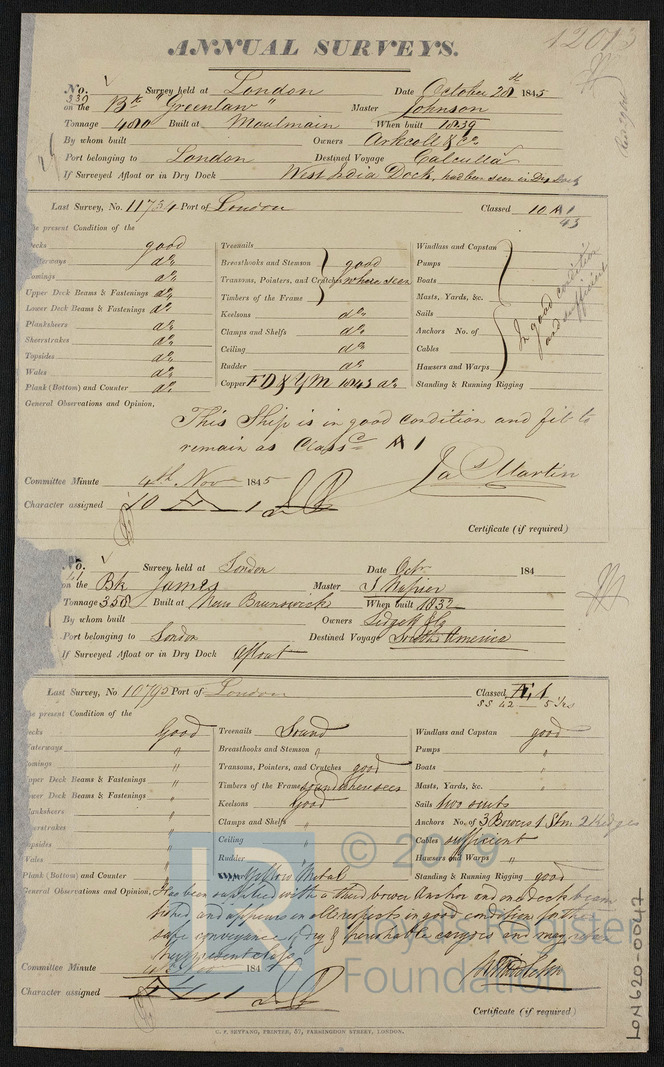 12013
ANNUAL SURVEYS.
No. 339 Survey held at London Date October 28th 1845
on the Bk "Greenlaw" Master Johnson
Tonnage 400 Built at Moulmain When built 1839
By whom built Owners Arkcoll & Co
Port belonging to London Destined Voyage Calcutta
If Surveyed Afloat or in Dry Dock West India Dock, had been seen in Dry Dock
Last Survey, No. 11734 Port of London Classed 10 A 1
43
he present Condition of the
ecks good Treenails Windlass and Capstan
aterways do Breasthooks and Stemson good Pumps
omings do Transoms, Pointers, and Crutches where seen Boats
Upper Deck Beams & Fastenings do Timbers of the Frame Masts, Yards, &c.
Lower Deck Beams & Fastenings do Keelsons do Sails
Planksheers do Clamps and Shelfs do Anchors No. of
Sheerstrakes do Ceiling do Cables
Topsides do Rudder do Hawsers and Warps
Wales do Copper F D & Y M 1843 do Standing & Running Rigging
Plank (Bottom) and Counter do
In good condition and sufficient
General Observations and Opinion,
This Ship is in good condition and fit to
remain as Classd A 1
Jas Martin
Committee Minute 4th Nov 1845
Character assigned 10 A 1
Certificate (if required)
No. 41 Survey held at London Date Octr 184
on the Bk James Master J Napier
Tonnage 358 Built at New Brunswick When built 1832
By whom built Owners
Port belonging to London Destined Voyage South America
If Surveyed Afloat or in Dry Dock Afloat
Last Survey, No 10793 Port of London Classed, Æ 1
SS 42 5 Yrs
he present Condition of the
ecks Good Treenails Sound Windlass and Capstan good
Waterways " Breasthooks and Stemson " Pumps "
omings " Transoms, Pointers, and Crutches good Boats "
pper Deck Beams & Fastenings " Timbers of the Frame sound where seen Masts, Yards, &c. "
ower Deck Beams & Fastenings " Keelsons Good Sails two suits
lanksheers " Clamps and Shelfs " Anchors No. of 3 Bowers 1 Strm 2 Kedges
eerstrakes " Ceiling " Cables sufficient
opsides " Rudder " Hawsers and Warps "
Wales " Yellow Metal Standing & Running Rigging good
Plank (Bottom) and Counter "
General Observations and Opinion, Has been supplied with a third bower Anchor and one deck beam
and appears in all respects in good condition for the
safe conveyance of dry & perishable cargoes
present class
Committee Minute 184
Character assigned Æ 1
Certificate (if required)
C. F. SEYFANG, PRINTER, 57, FARRINGDON STREET, LONDON.
LON620-0047
LR © 2019
Lloyd's Register
Foundation